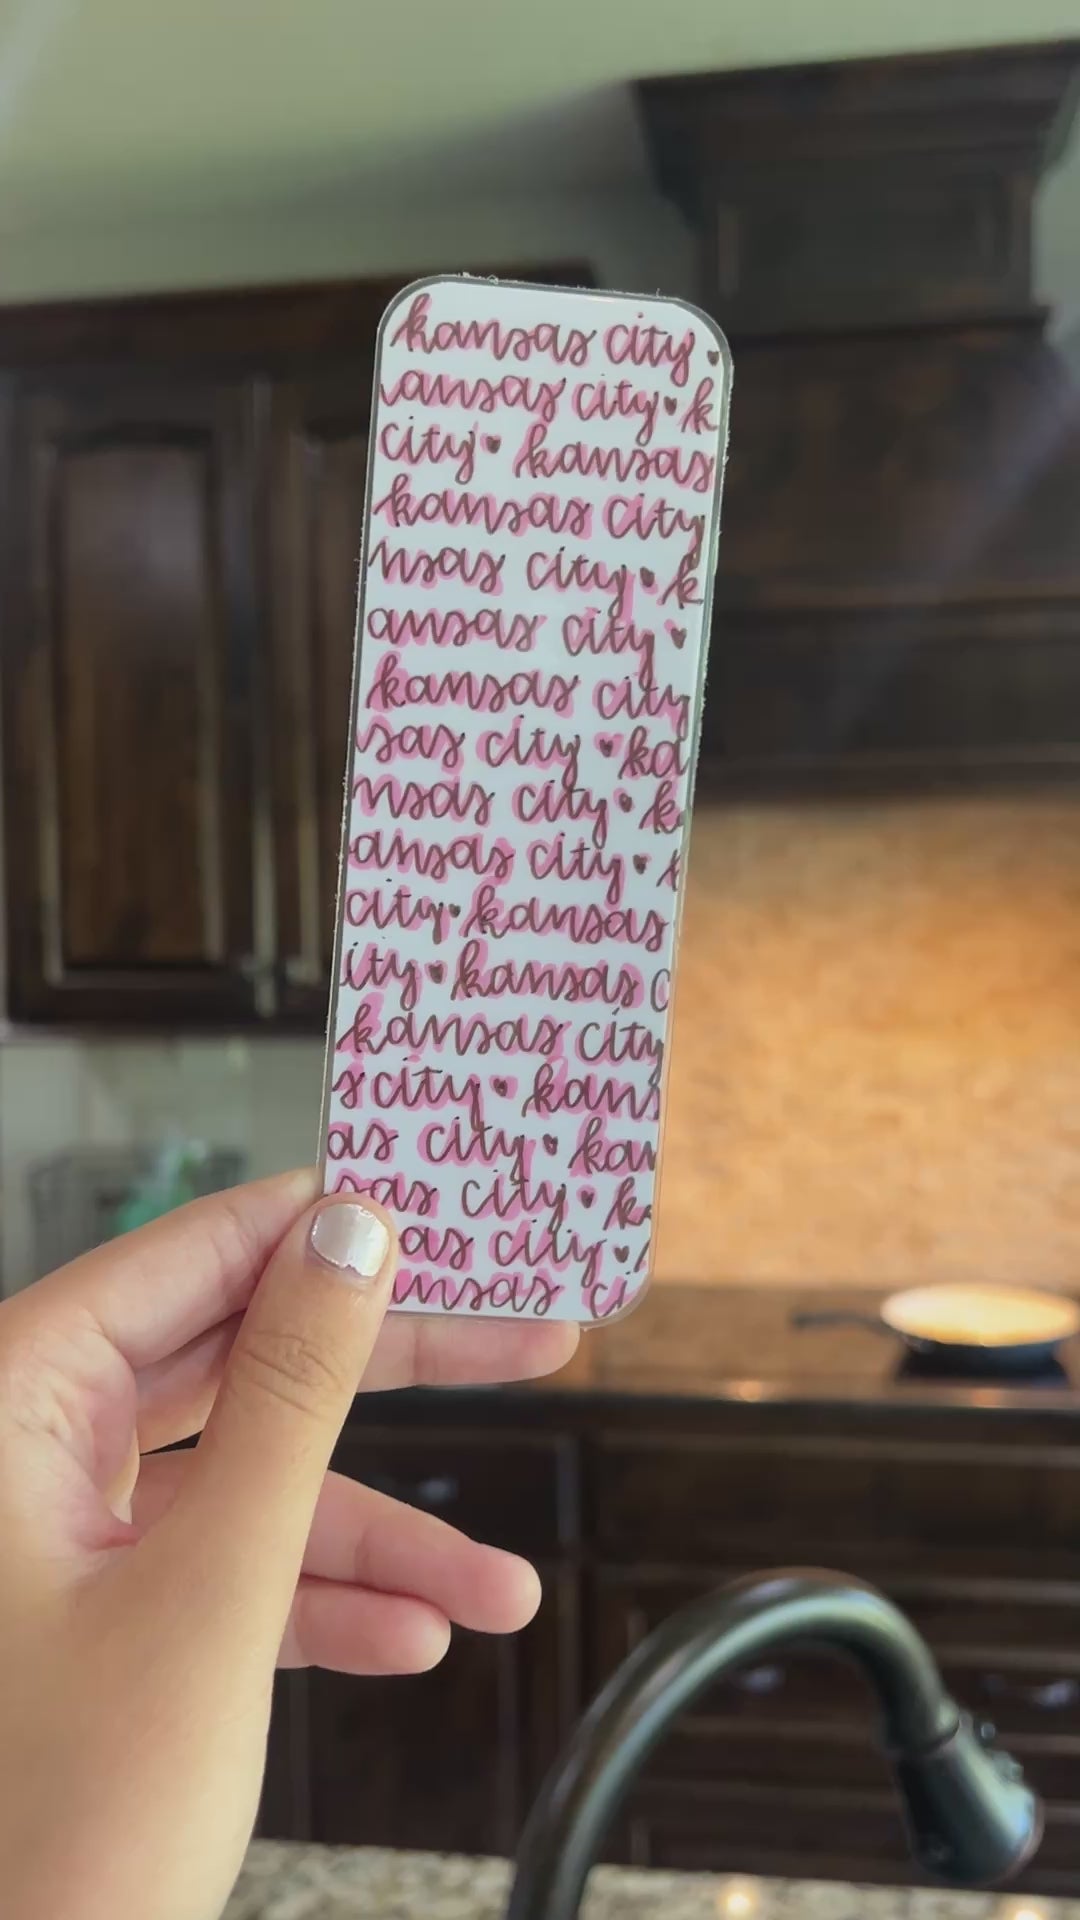 kansas city
ansas city k
city kansas
kansas city
nsas city k
ansas city
kansas city
sas city ka
nsas city k
ansas city
city kansas
ity kansas c
kansas city
s city kans
as city kan
sas city k
as city
ansas ci